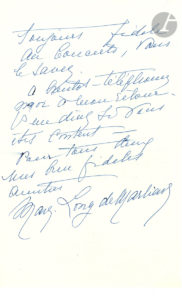 Toujours fidèle
au Concerts, vous
le savez.
à bientôt - téléphonez
pour à mon retour.
vous
êtes content =
Pour tous deux
mes bien fidèles
amitiés
Marg. Long de Marliave